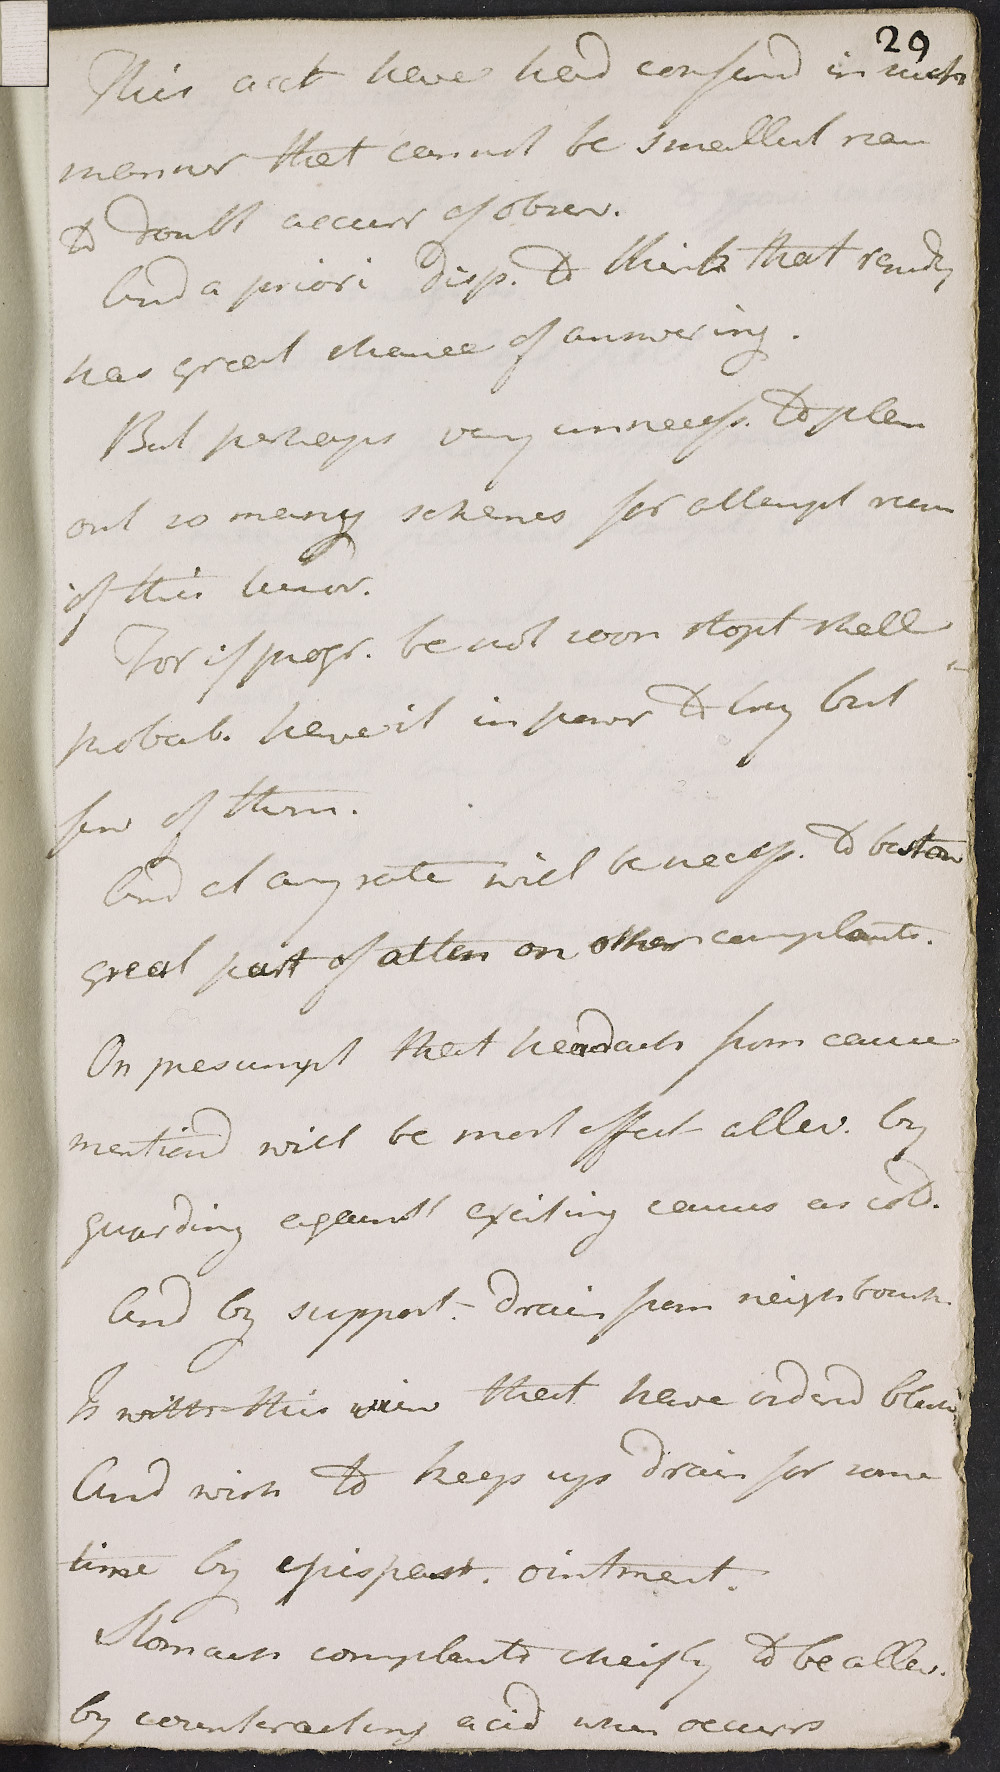 29
This acct have had confirmd in such
manner that cannot be smallest rea
to doubt accur of obser.
And a priori disp. to think that remdy
has great chance of answering.
But perhaps very unnecess. to plan
out so many schemes for attempt rem
of this tumor.
For if progr. be not soon stopt shall
probab. have it in power to try but
few of them.
And at any rate will be necess. to bestow
great part of atten on other complants.
On presumpt that headach from cause
mentiond will be most effect allev. by
guarding against exciting causes as cold.
And by support drain from neighbourh.
Is with this view that have orderd
And wish to keep up drain for some
time by epispast. ointment.
Stomach complants cheifly to be allev.
by counteracting acid when occurrs